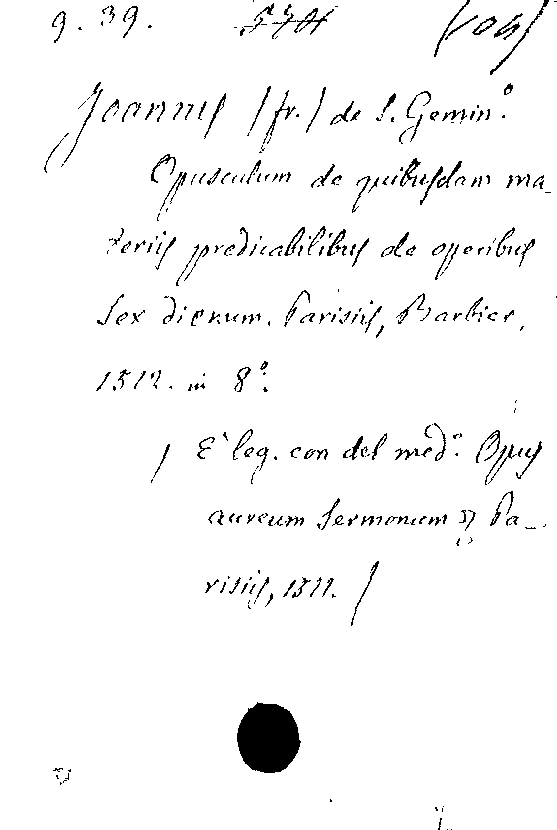 9. 39.
Joannes (fr.) de S. Gemin.º
Opusculum de quibusdam ma-
teriis predicabilibus de operibus
sex dierum. Parisiis, Barbier,
1512. in 8º.
( E' leg. con del medº. Opus
aureum sermonum Pa-
risiis, 1511. )